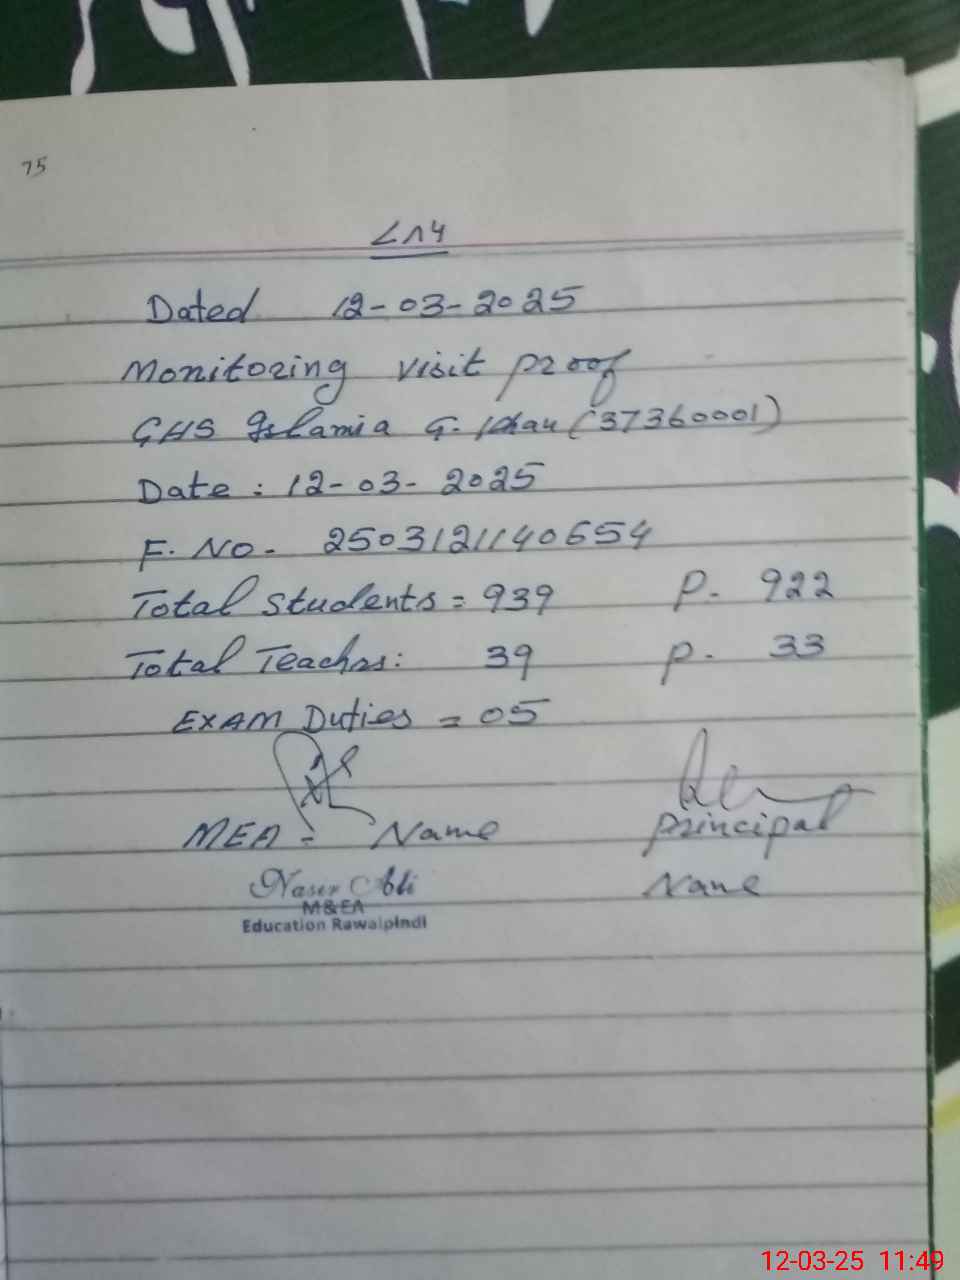 75
ㄥ㇒4
Dated 12-03-2025
Monitoring visit proof
GHS Islamia G. Khan (37360001)
Date : 12-03-2025
F. No. 2503121140654
Total Students = 939 P. 922
Total Teachrs: 39 P. 33
EXAM Duties = 05
MEA = Name Principal
Naser Ali Name
M&EA
Education Rawalpindi
12-03-25 11:49